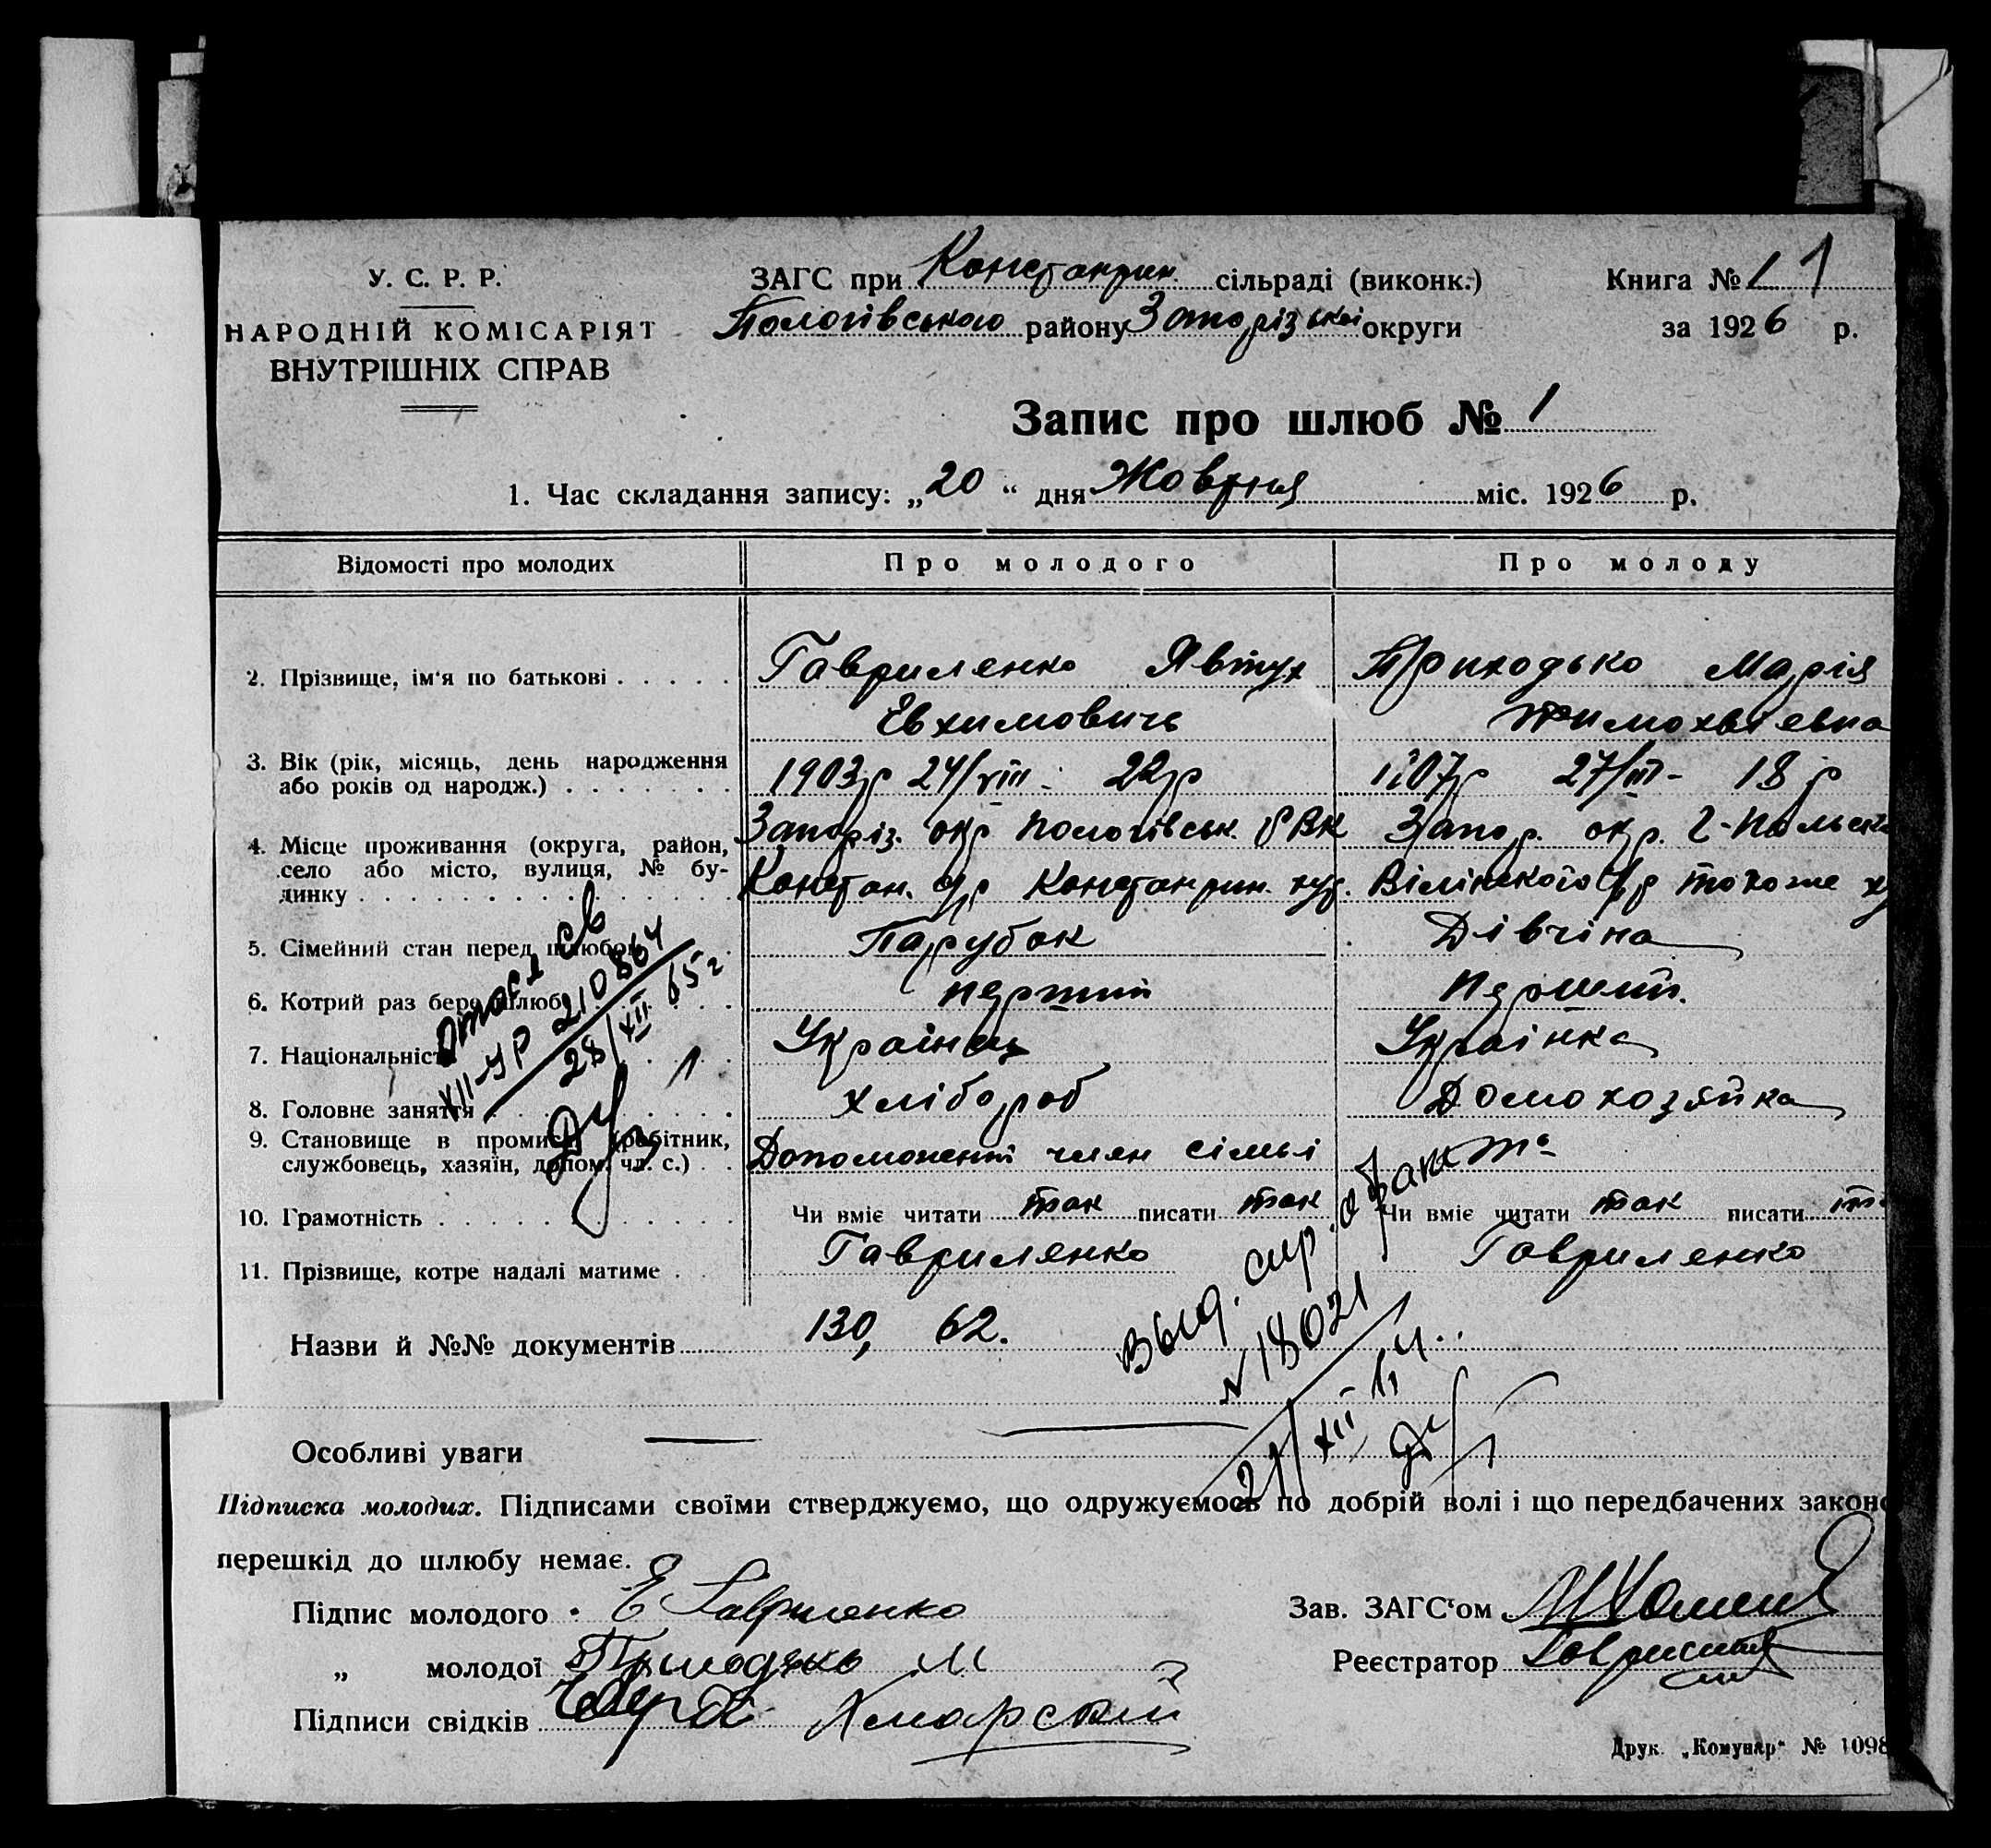 У. С. Р. Р.
НАРОДНІЙ КОМІСАРІЯТ
ВНУТРІШНІХ СПРАВ
ЗАГС при Констанрин. сільраді (виконк.)
Пологівського району Запорізької округи
Книга № 1 1
за 1926 р.
Запис про шлюб № 1
1. Час складання запису: „20“ дня Жовтня міс. 1926 р.
Відомості про молодих Про молодого Про молоду
2. Прізвище, ім'я по батькові Гавриленко Явтух Приходько Марія
Евхимовичь Тимохвіевна
3. Вік (рік, місяць, день народження або років од народж.) 1903р 24/VIII 22р 1907р 27/III - 18р
4. Місце проживання (округа, район, село або місто, вулиця, № будинку) Запоріз. окр Пологівськ. РВК Запор. окр. Г-Польск
Констан. с/р Констанрин. хут. с/р тохоже
5. Сімейний стан перед шлюбом Парубок Дівчіна
6. Котрий раз бере шлюб перший перший
7. Національність Українець Українка
8. Головне заняття хлібороб Домохозяйка
9. Становище в промислі (робітник, службовець, хазяїн, допом. чл. с.) Допоможений член сімьі
10. Грамотність Чи вміє читати так писати так Чи вміє читати так писати
11. Прізвище, котре надалі матиме Гавриленко Гавриленко
Назви й №№ документів 130, 62.
XII-УР 210864
28/XII 65г
Выд. спр. о браке
N 18021
21/XII
Особливі уваги
Підписка молодих. Підписами своїми стверджуємо, що одружуємось по добрій волі і що передбачених законо
перешкід до шлюбу немає.
Підпис молодого Е Гавриленко
„ молодої Приходько М
Підписи свідків Хмарский
Зав. ЗАГС'ом
Реєстратор
Друк. „Комунар“ № 1098